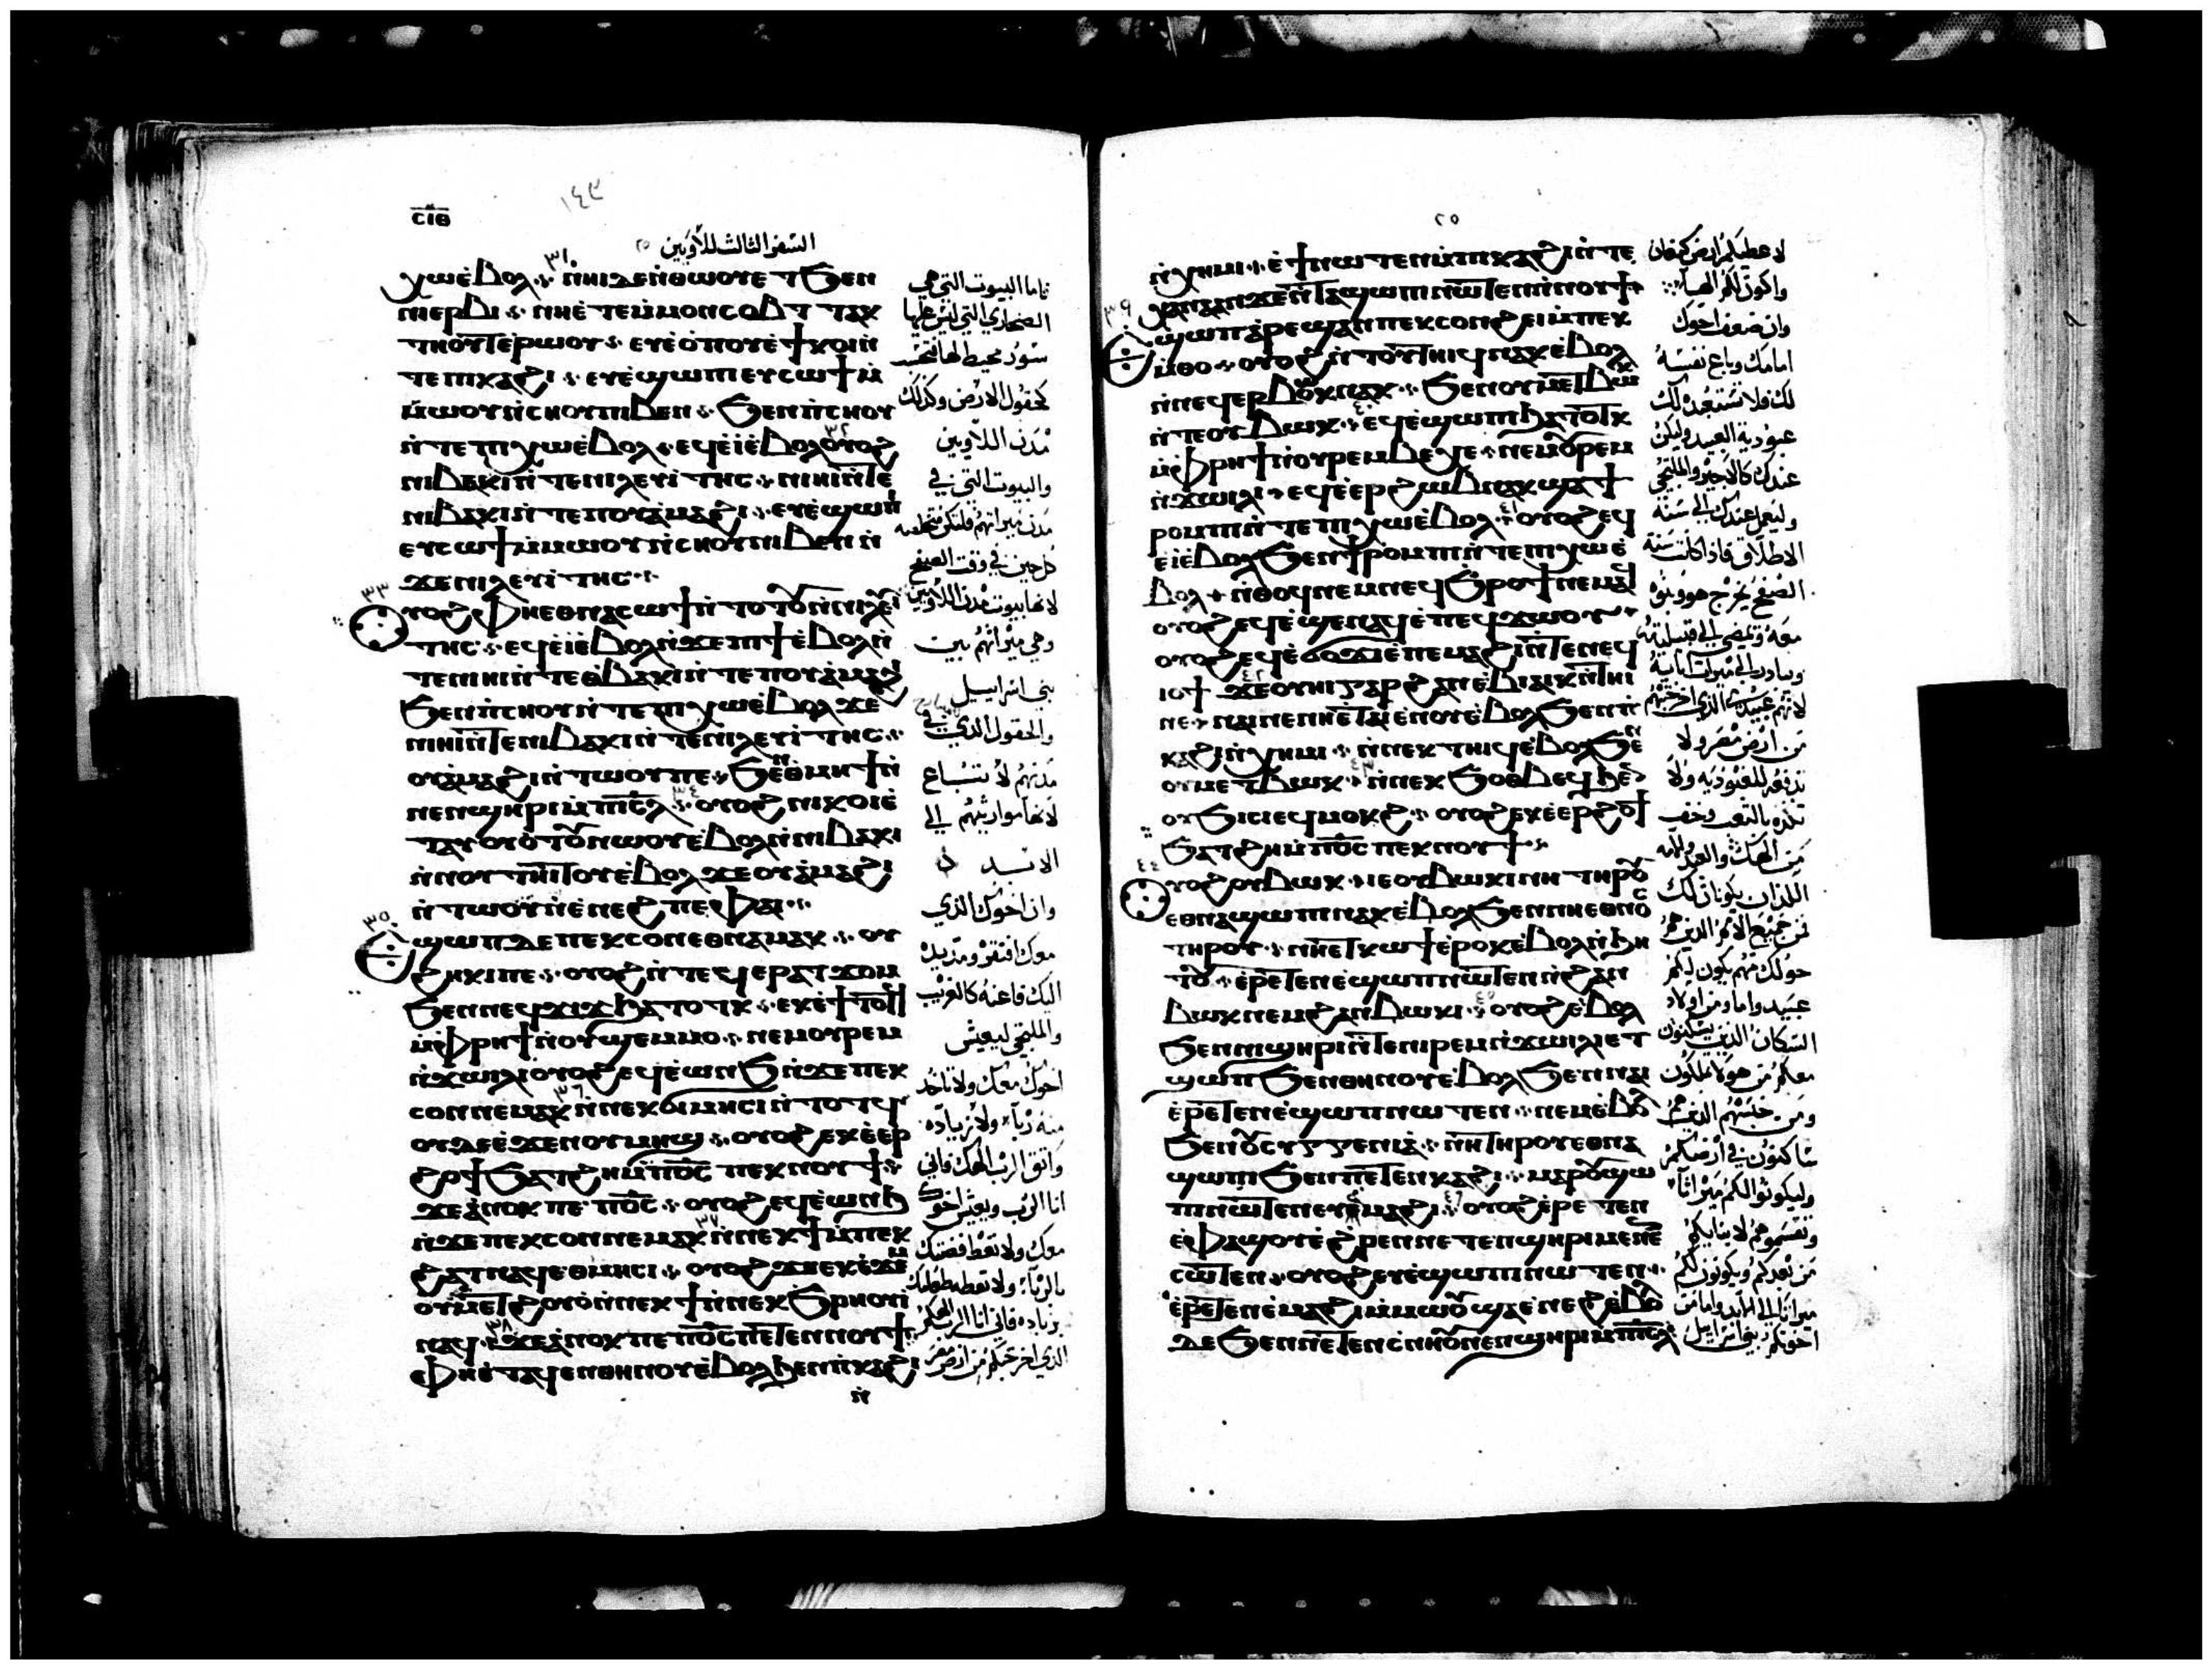 ⲥⲓⲑ
١٤٣
السفر الثالث للاويين
ⲭⲱⲉ̀ⲃⲟⲗ ⲛⲓⲏⲓ ⲇⲉ ⲛ̀ⲑⲱⲟⲩⲉⲧ ϧⲉⲛ
ⲛⲓⲉⲣⲃⲓ ⲛⲏⲉ̀ⲧⲉⲙ̀ⲙⲟⲛⲥⲟⲃⲧ ⲧⲁⲕ
ⲧⲏⲟⲩⲧ ⲉ̀ⲣⲱⲟⲩ ⲉⲩⲉ̀ⲟⲡⲟⲩ ⲉ̀ϯⲕⲟⲓ ⲛ̀
ⲧⲉ ⲡⲓⲕⲁϩⲓ ⲉⲩⲉ̀ϣⲱⲡⲓ ⲉⲩⲥⲱϯ ⲙ̀
ⲙ̀ⲱⲟⲩ ⲛ̀ⲥⲏⲟⲩ ⲛⲓⲃⲉⲛ ϧⲉⲛ ⲡ̀ⲥⲏⲟⲩ
ⲛ̀ⲧⲉ ⲡⲓⲭⲱⲉ̀ⲃⲟⲗ ⲉϥⲉ̀ⲓ̀ⲉ̀ⲃⲟⲗ ⲟⲩⲟϩ
ⲛⲓⲃⲁⲕⲓ ⲛ̀ⲧⲉ ⲛⲓⲗⲉⲩⲓⲧⲏⲥ ⲛⲓⲏⲓ ⲛ̀ⲧⲉ
ⲛⲓⲃⲁⲕⲓ ⲛ̀ⲧⲉ ⲡⲟⲩⲁ̀ⲙⲁϩⲓ ⲉⲩⲉ̀ϣⲱⲡⲓ
ⲉⲩⲥⲱϯ ⲙ̀ⲙⲱⲟⲩ ⲛ̀ⲥⲏⲟⲩ ⲛⲓⲃⲉⲛ ⲛ̀
ϫⲉ ⲛⲓⲗⲉⲩⲓⲧⲏⲥ
ⲟⲩⲟϩ ⲫⲏⲉⲑⲛⲁⲥⲱϯ ⲛ̀ⲧⲟⲧⲟⲩ ⲛ̀ⲛⲓⲗⲉⲩⲓ
ⲧⲏⲥ ⲉϥⲉ̀ⲓ̀ⲉ̀ⲃⲟⲗ ⲛ̀ϫⲉ ⲡⲓϯⲉ̀ⲃⲟⲗ ⲛ̀
ⲧⲉ ⲛⲓⲏⲓ ⲛ̀ⲧⲉ ⲑⲃⲁⲕⲓ ⲛ̀ⲧⲉ ⲡⲟⲩⲁ̀ⲙⲁϩⲓ
ϧⲉⲛ ⲡ̀ⲥⲏⲟⲩ ⲛ̀ⲧⲉ ⲡⲓⲭⲱⲉ̀ⲃⲟⲗ ϫⲉ
ⲛⲓⲏⲓ ⲛ̀ⲧⲉ ⲛⲓⲃⲁⲕⲓ ⲛ̀ⲧⲉ ⲛⲓⲗⲉⲩⲓⲧⲏⲥ
ⲟⲩⲁ̀ⲙⲁϩⲓ ⲛ̀ⲧⲱⲟⲩ ⲡⲉ ϧⲉⲛ ⲑ̀ⲙⲏϯ ⲛ̀
ⲛⲉⲛϣⲏⲣⲓ ⲙ̀ⲡⲓⲥⲗ ⲟⲩⲟϩ ⲛⲓⲕⲟⲓ ⲉ̀
ⲧⲁⲩⲟⲩⲟⲧⲟⲩ ⲛⲱⲟⲩ ⲉ̀ⲃⲟⲗ ⲛ̀ⲛⲓⲃⲁⲕⲓ
ⲛ̀ⲛⲟⲩⲧⲏⲓⲧⲟⲩ ⲉ̀ⲃⲟⲗ ϫⲉ ⲟⲩⲁ̀ⲙⲁϩⲓ
ⲛ̀ⲧⲱⲟⲩ ⲛ̀ⲉ̀ⲛⲉϩ ⲡⲉ ⲫⲁⲓ
ⲉ̀ϣⲱⲡ ⲇⲉ ⲡⲉⲕⲥⲟⲛ ⲉⲑⲛⲉⲙⲁⲕ ⲟⲩ
ϩⲏⲕⲓ ⲡⲉ ⲟⲩⲟϩ ⲛ̀ⲧⲉϥⲉⲣⲁⲧϫⲟⲙ
ϧⲉⲛ ⲛⲉϥϫⲓϫ ϧⲁⲧⲟⲧⲕ ⲉⲕⲉ̀ϯⲧⲟⲧϥ
ⲙ̀ⲫⲣⲏϯ ⲛ̀ⲟⲩϣⲉⲙⲙⲟ ⲛⲉⲙ ⲟⲩⲣⲉⲙ
ⲛ̀ϫⲱⲓⲗⲓ ⲟⲩⲟϩ ⲉϥⲉ̀ⲱⲛϧ ⲛ̀ϫⲉ ⲡⲉⲕ
ⲥⲟⲛ ⲛⲉⲙⲁⲕ ⲛ̀ⲛⲉⲕϭⲓⲙⲏⲥⲓ ⲛ̀ⲧⲟⲧϥ
ⲟⲩⲇⲉ ⲉ̀ϫⲉⲛ ⲟⲩⲙⲏϣ ⲟⲩⲟϩ ⲉⲕⲉ̀ⲉⲣ
ϩⲟϯ ϧⲁⲧϩⲏ ⲙ̀ⲡϭⲥ ⲡⲉⲕⲛⲟⲩϯ
ϫⲉ ⲁ̀ⲛⲟⲕ ⲡⲉ ⲡϭⲥ ⲟⲩⲟϩ ⲉϥⲉ̀ⲱⲛϧ
ⲛ̀ϫⲉ ⲡⲉⲕⲥⲟⲛ ⲛⲉⲙⲁⲕ ⲛ̀ⲛⲉⲕϯ ⲙ̀ⲡⲉⲕ
ϩⲁⲧ ⲛⲁϥ ⲉⲑⲙⲏⲥⲓ ⲟⲩⲟϩ
ⲟⲩⲙⲉⲧϩⲟⲩⲟ̀ ⲛ̀ⲛⲉⲕϯ ⲛ̀ⲛⲉⲕϧⲣⲏⲟⲩⲓ̀
ⲛⲁϥ ϫⲉ ⲁ̀ⲛⲟⲕ ⲡⲉ ⲡϭⲥ ⲡⲉⲧⲉⲛⲛⲟⲩϯ
ⲫⲏⲉ̀ⲧⲁϥⲉⲛ ⲑⲏⲛⲟⲩ ⲉ̀ⲃⲟⲗ ϧⲉⲛ ⲡ̀ⲕⲁϩⲓ
ⲛ̀
فاما البيوت التي هي
الصحاري التي ليس عليها
سور محيط لها فتحسب
كحقول الارض وكذلك
مدن اللاويين
والبيوت التي في
مدن ميراثهم فلتكن متخلصه
كل حين في وقت الصفح
لانها بيوت مدن اللاويين
وهي ميراثهم بين
بني اسراييل
والحقول الذي في
مدنهم لا تتباع
لانها مواريثهم الي
الابد
وان اخوك الذي
معك افتقر ومد يد
اليك فاعنه كالغريب
والملتجي ليعيش
اخوك معك ولا تاخد
منه ربا ولا زياده
واتق الرب الهك فاني
انا الرب ويعيش اخوك
معك ولا تعط فضتك
بالربا ولا تعطه طعامك
بزياده فاني انا الرب الهكم
الذي اخرجكم من ارض مصر
٢٥
ⲛ̀ⲭⲏⲙⲓ ⲉ̀ϯ ⲛⲱⲧⲉⲛ ⲙ̀ⲡⲕⲁϩⲓ ⲛ̀ⲧⲉ
ⲭⲁⲛⲁⲁⲛ ϫⲉ ⲛ̀ⲧⲁϣⲱⲡⲓ ⲛⲱⲧⲉⲛ ⲛ̀ⲛⲟⲩϯ
ⲉ̀ϣⲱⲡ ⲁ̀ⲣⲉϣⲁⲛ ⲡⲉⲕⲥⲟⲛ ϩⲉⲓ ⲙ̀ⲡⲉⲕ
ⲙ̀ⲑⲟ ⲟⲩⲟϩ ⲛ̀ⲧⲟⲩⲧⲏⲓϥ ⲛⲁⲕ ⲉ̀ⲃⲟⲗ
ⲛ̀ⲛⲉϥⲉⲣⲃⲱⲕ ⲛⲁⲕ ϧⲉⲛ ⲟⲩⲙⲉⲧⲃⲱⲕ
ⲛ̀ⲧⲉ ⲟⲩⲃⲱⲕ ⲉϥⲉ̀ϣⲱⲡⲓ ϧⲁⲧⲟⲧⲕ
ⲙ̀ⲫⲣⲏϯ ⲛ̀ⲟⲩⲣⲉⲙⲃⲉⲭⲉ ⲛⲉⲙ ⲟⲩⲣⲉⲙ
ⲛ̀ϫⲱⲓⲗⲓ ⲉϥⲉ̀ⲉⲣϩⲱⲃ ⲛⲁⲕ ϣⲁ ϯ
ⲣⲟⲙⲡⲓ ⲛ̀ⲧⲉ ⲡⲓⲭⲱⲉ̀ⲃⲟⲗ ⲟⲩⲟϩ ⲉϥ
ⲉ̀ⲓ̀ⲉ̀ⲃⲟⲗ ϧⲉⲛ ϯⲣⲟⲙⲡⲓ ⲛ̀ⲧⲉ ⲡⲓⲭⲱⲉ̀
ⲃⲟⲗ ⲛ̀ⲑⲟϥ ⲛⲉⲙ ⲛⲉϥϧⲣⲟϯ ⲛⲉⲙⲁϥ
ⲟⲩⲟϩ ⲉϥⲉ̀ϣⲉⲛⲁϥ ⲉ̀ⲡⲉϥϫⲱⲟⲩ
ⲟⲩⲟϩ ⲉϥⲉ̀ϭⲟϫⲓ ⲉ̀ⲡⲉⲙⲁϩⲓ ⲛ̀ⲧⲉ ⲛⲉϥ
ⲓⲟϯ ϫⲉ ⲟⲩⲏⲓ ⲅⲁⲣ ϩⲁⲛⲉ̀ⲃⲓⲁⲓⲕ ⲛ̀ⲧⲏⲓ
ⲛⲉ ⲛⲁⲓ ⲛⲉ ⲛⲏⲉ̀ⲧⲁⲓⲉ̀ⲛⲟⲩ ⲉ̀ⲃⲟⲗ ϧⲉⲛ ⲡ̀
ⲕⲁϩⲓ ⲛ̀ⲭⲏⲙⲓ ⲛ̀ⲛⲉⲕⲧⲏⲓϥ ⲉ̀ⲃⲟⲗ ϧⲉⲛ
ⲟⲩⲙⲉⲧⲃⲱⲕ ⲛ̀ⲛⲉⲕϧⲟⲑⲃⲉϥ ϧⲉⲛ
ⲟⲩϧⲓⲥⲓ ⲉϥⲙⲟⲕϩ ⲟⲩⲟϩ ⲉⲕⲉ̀ⲉⲣϩⲟϯ
ϧⲁⲧϩⲏ ⲙ̀ⲡϭⲥ ⲡⲉⲕⲛⲟⲩϯ
ⲟⲩⲟϩ ⲟⲩⲃⲱⲕ ⲓⲉ ⲟⲩⲃⲱⲕⲓ ⲛⲏ ⲧⲏⲣⲟⲩ
ⲉⲑⲛⲁϣⲱⲡⲓ ⲛⲁⲕ ⲉ̀ⲃⲟⲗ ϧⲉⲛ ⲛⲓⲉⲑⲛⲟⲥ
ⲧⲏⲣⲟⲩ ⲛⲏⲉⲧⲕⲱϯ ⲉ̀ⲣⲟⲕ ⲉ̀ⲃⲟⲗ ⲛ̀ϧⲏ
ⲧⲟⲩ ⲉ̀ⲣⲉⲧⲉⲛⲉ̀ϣⲱⲡⲓ ⲛⲱⲧⲉⲛ ⲛ̀ϩⲁⲛ
ⲃⲱⲕ ⲛⲉⲙ ϩⲁⲛⲃⲱⲕⲓ ⲟⲩⲟϩ ⲉ̀ⲃⲟⲗ
ϧⲉⲛ ⲛⲓϣⲏⲣⲓ ⲛ̀ⲧⲉ ⲛⲓⲣⲉⲙⲛ̀ϫⲱⲓⲗⲓ ⲉⲧ
ϣⲱⲡ ϧⲉⲛ ⲑⲏⲛⲟⲩ ⲉ̀ⲃⲟⲗ ϧⲉⲛ ⲛⲁⲓ
ⲉ̀ⲣⲉⲧⲉⲛⲉ̀ϣⲱⲡⲓ ⲛⲱⲧⲉⲛ ⲛⲉⲙ ⲉ̀ⲃⲟⲗ
ϧⲉⲛ ⲟⲩⲥⲩⲅⲅⲉⲛⲓⲁ̀ ⲛⲏ ⲧⲏⲣⲟⲩ ⲉⲑⲛⲁ
ϣⲱⲡⲓ ϧⲉⲛ ⲡⲉⲧⲉⲛⲕⲁϩⲓ ⲙⲁⲣⲟⲩϣⲱ
ⲡⲓ ⲛⲱⲧⲉⲛ ⲉⲩⲁ̀ⲙⲁϩⲓ ⲟⲩⲟϩ ⲉ̀ⲣⲉⲧⲉⲛ
ⲉ̀ⲫⲁϣⲟⲩ ⲉ̀ϩⲣⲉⲛ ⲛⲉⲧⲉⲛϣⲏⲣⲓ ⲙⲉⲛⲉⲛ
ⲥⲱⲧⲉⲛ ⲟⲩⲟϩ ⲉⲩⲉ̀ϣⲱⲡⲓ ⲛⲱⲧⲉⲛ
ⲉ̀ⲣⲉⲧⲉⲛⲉ̀ⲁⲙⲁϩⲓ ⲙ̀ⲙⲱⲟⲩ ϣⲁ ⲉ̀ⲛⲉϩ ⲉ̀ⲃⲟⲗ
ⲇⲉ ϧⲉⲛ ⲛⲉⲧⲉⲛⲥⲛⲏⲟⲩ ⲛⲉⲛϣⲏⲣⲓ ⲙ̀ⲡⲓⲥⲗ
لاعطيكم ارض كنعان
واكون لكم الها
وان ضعف اخوك
امامك وباع نفسه
لك فلا تستعبده لك
عبودية العبيد وليكن
عندك كالاجير والملتجي
وليعمل عندك الي سنة
الاطلاق فاذا كانت سنة
الصفح يخرج هو وبنوه
معه ويمضي الي قبيلته
ويبادر الي ميراث ابايه
لانهم عبيدي الذي اخرجتهم
من ارض مصر ولا
تدفعه للعبوديه ولا
تكده بالتعب وخف
من الهك والعبد والامه
اللذان يكونان لك
من جميع الامم الذين هم
حولك منهم يكون لكم
عبيد واما ومن اولاد
السكان الذين يسكنون
معكم من هولا تملكون
ومن جنسهم الذين هم
ساكنون في ارضكم
وليكونوا لكم ميراثا
وتقسموهم لابنايكم
من بعدكم ويكونون لكم
ميراثا الي الابد واما من
اخوتكم بني اسراييل